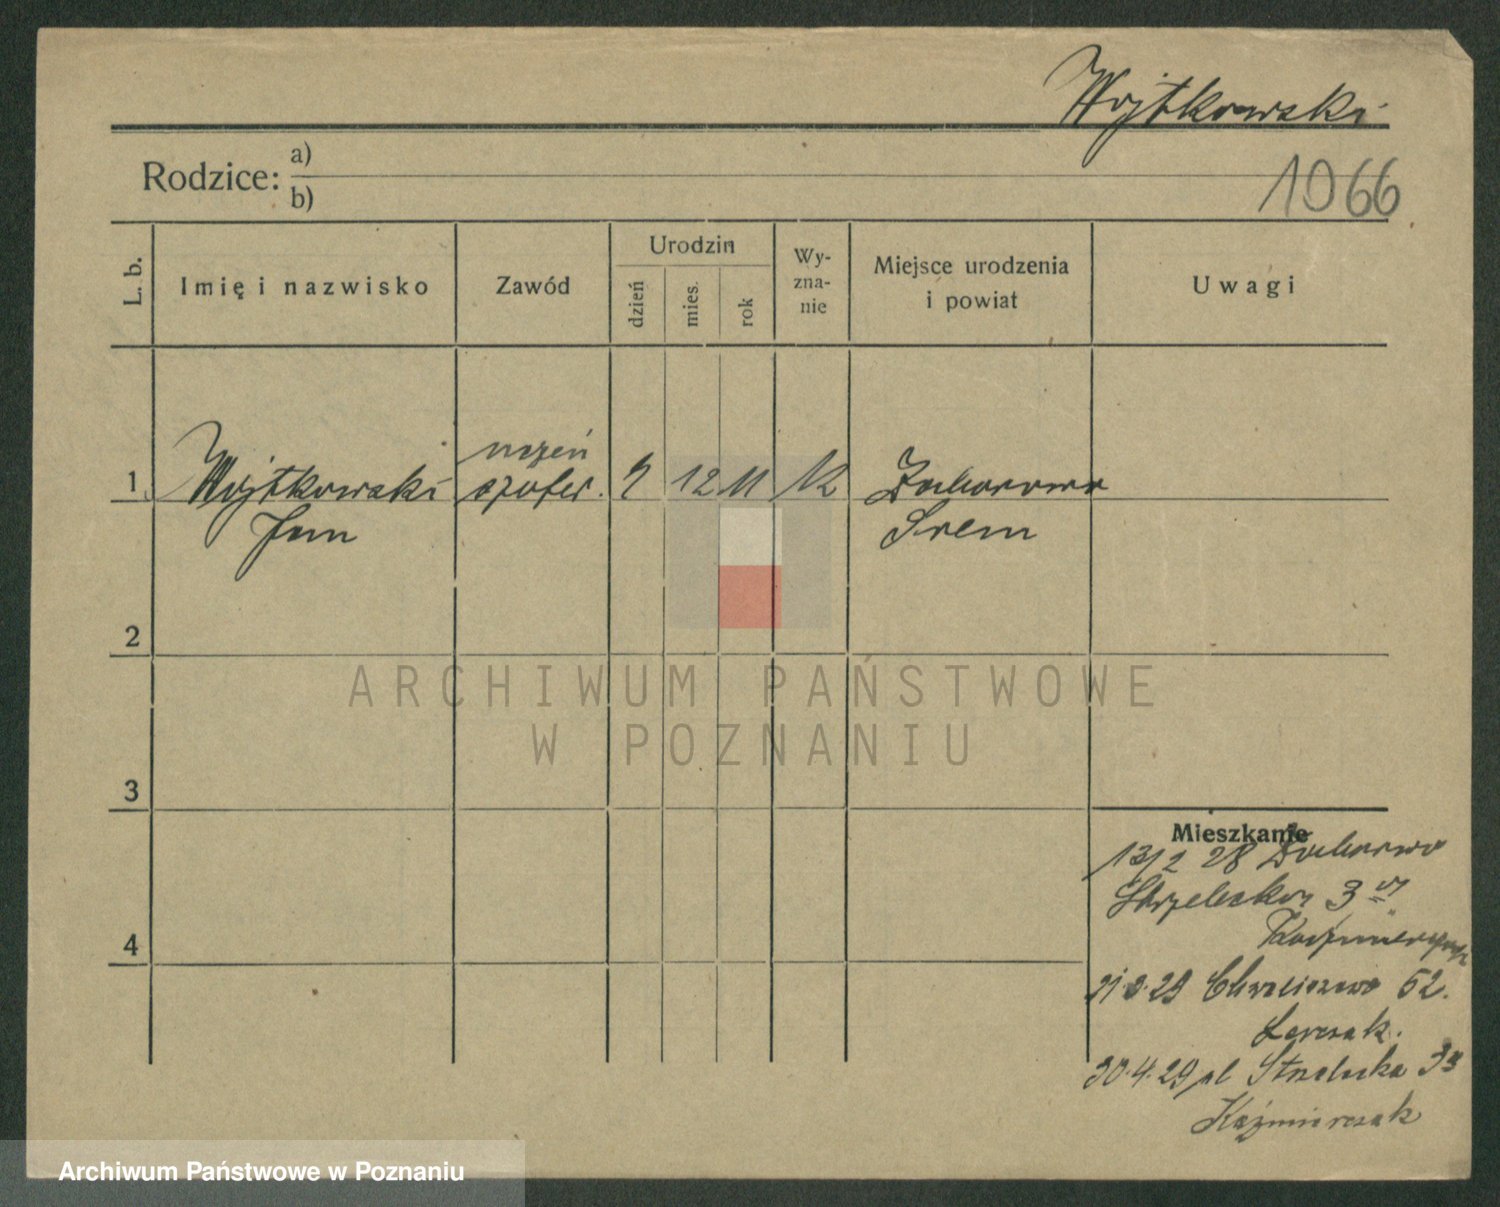 Wojtkowski
1066
Rodzice: a)
b)
L. b.
Imię i nazwisko
Zawód
Urodzin
dzień
mies.
rok
Wy-
zna-
nie
Miejsce urodzenia
i powiat
Uwagi
1 Wojtkowski
uczeń
szofer. 7 12 11 K
Jan
Śrem
2
3
4
ARCHIWUM PAŃSTWOWE
W POZNANIU
Mieszkanie
13/2 28
Strzelecka 3
Kaźmierczak
21.3.29 Chwaliszewo 62.
30.4.29 pl Strzelecka 33
Kaźmierczak
Archiwum Państwowe w Poznaniu